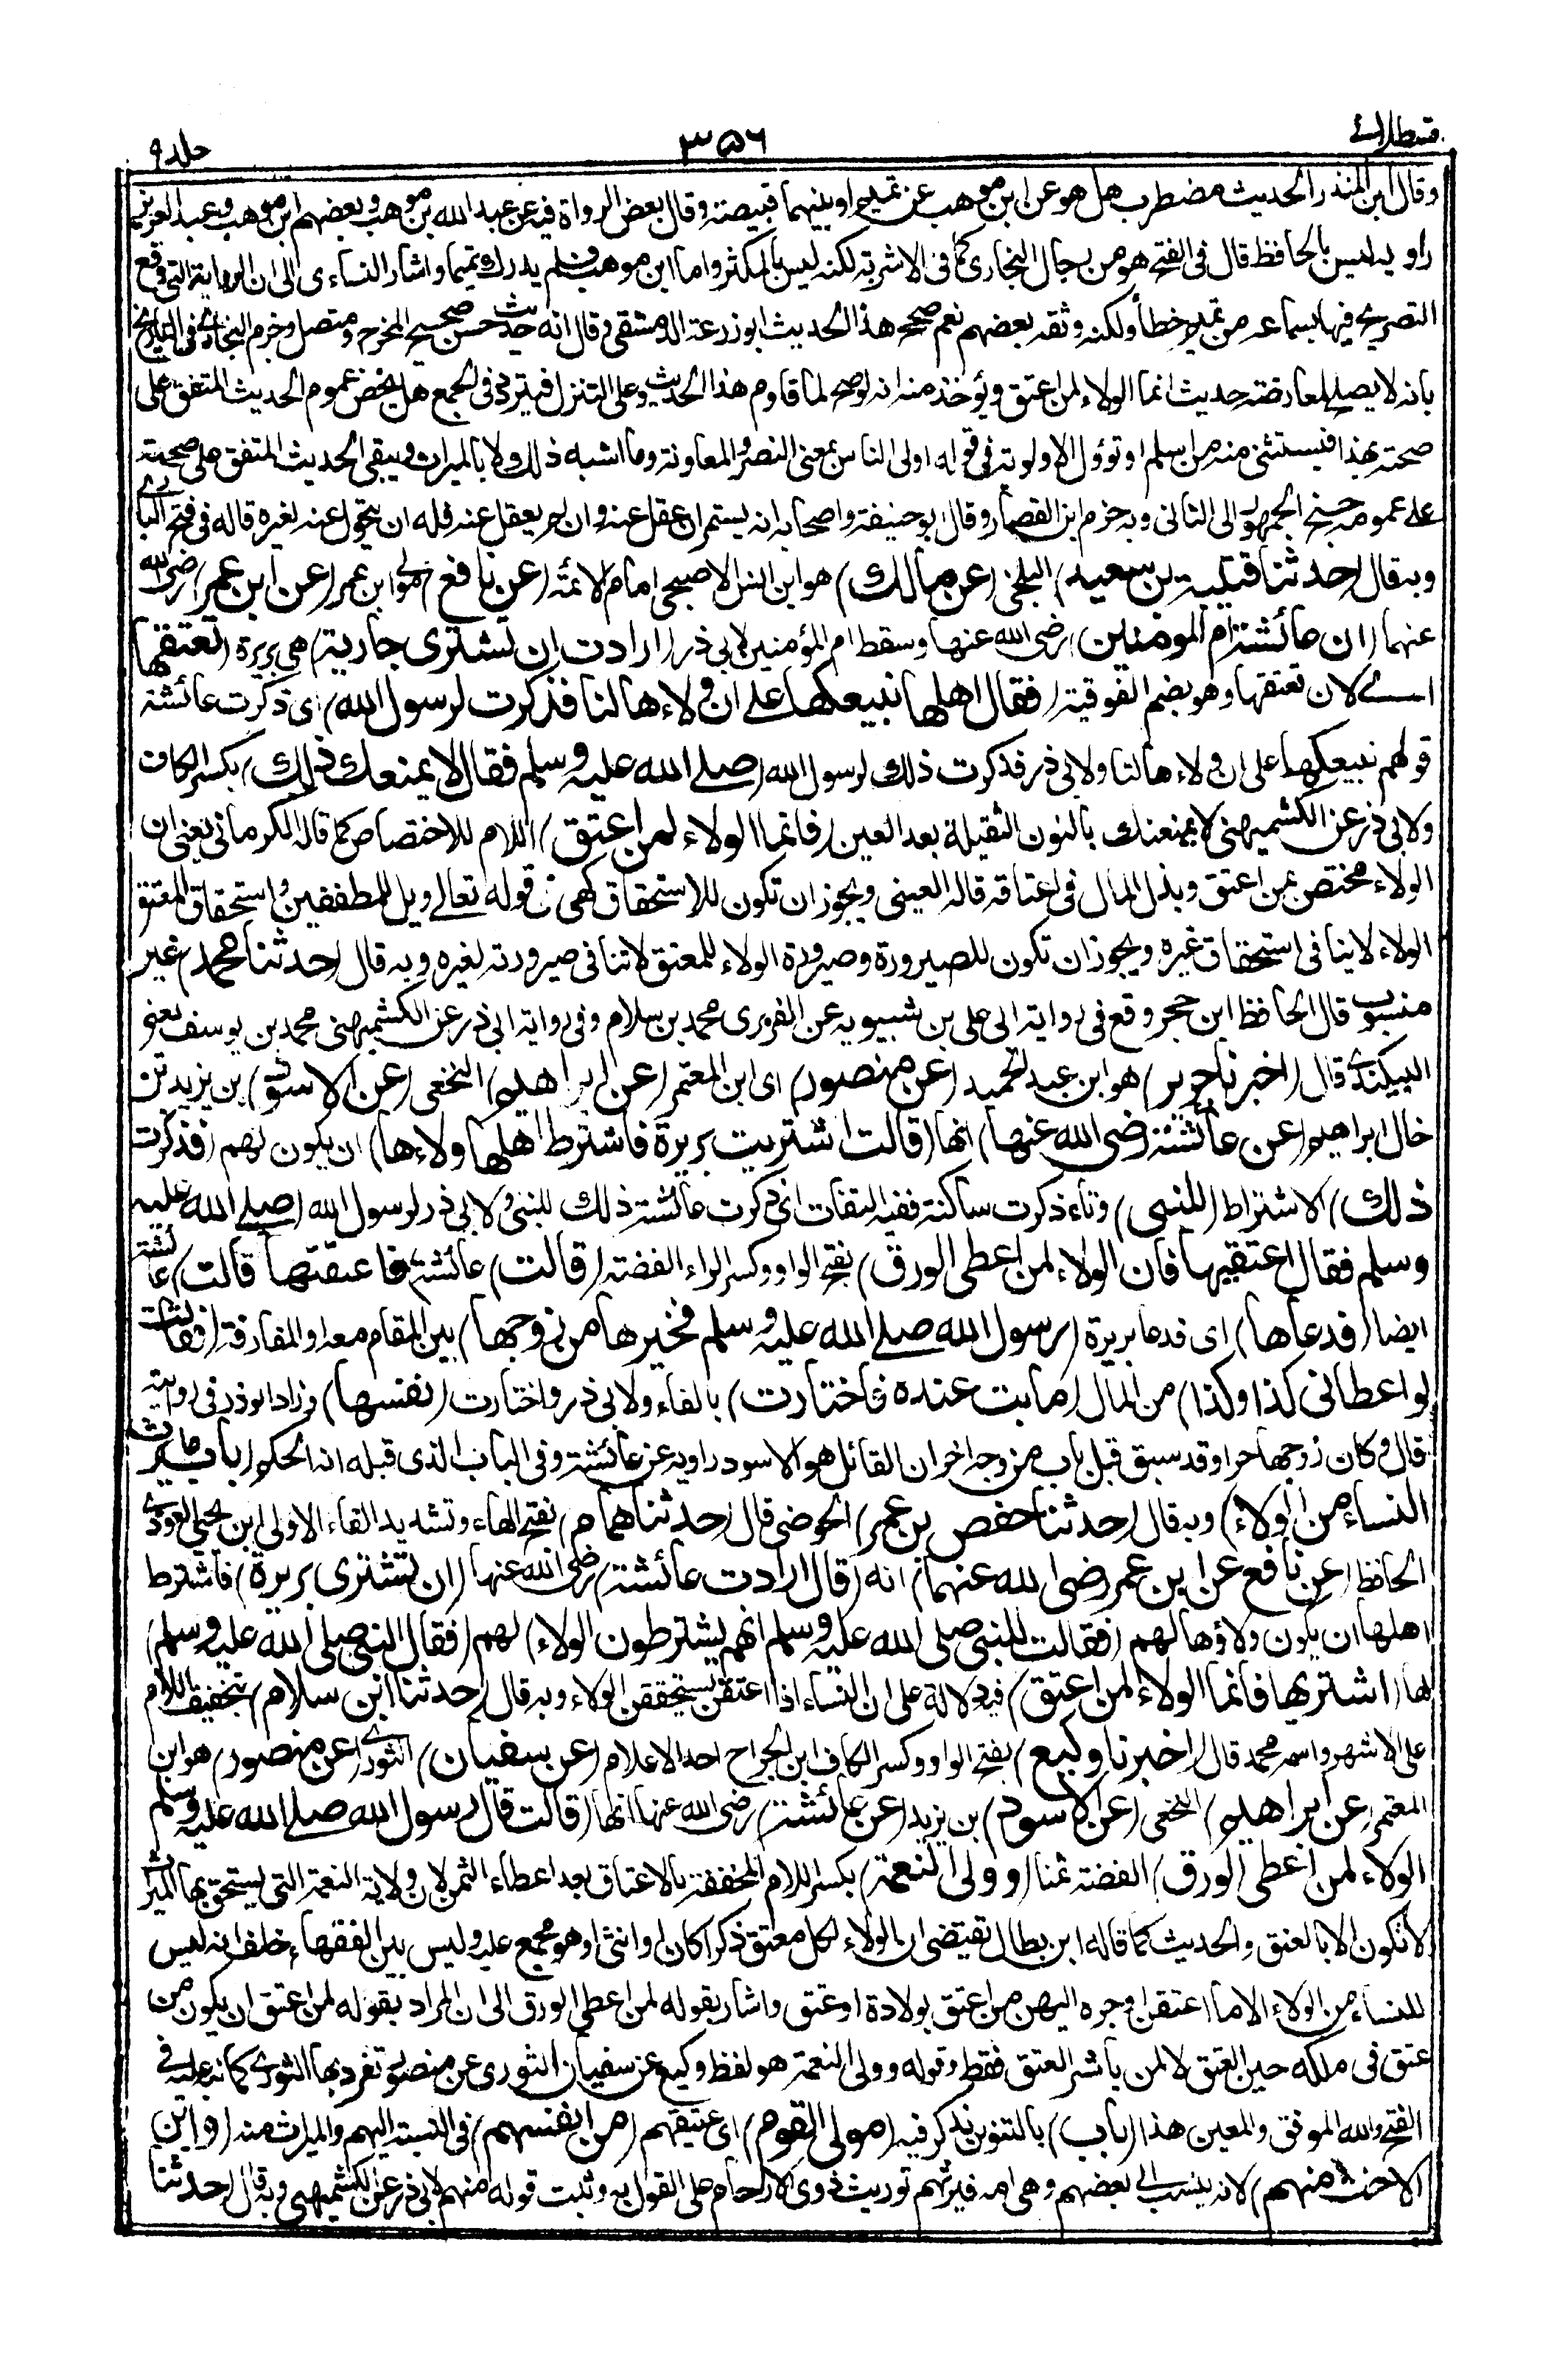 قسطلانے ٣٥٦ جلد ٩
وقال ابن المنذر الحديث مضطرب هل هو عن ابن موهب عن تميم او بينهما قبيصة وقال بعض الرواة فيه عن عبد الله بن موهب وبعضهم ابن موهب وعبد العزيز
راويه ليس بالحافظ قال فى الفتح هو من رجال البخارى كما فى الاشربة لكنه ليس بالمكثر واما ابن موهب فلم يدرك تميما واشار النساءى الى ان الرواية التى وقع
التصريح فيها بسماعه من تميم خطأ ولكنه وثقه بعضهم نعم صحح هذا الحديث ابو زرعة الدمشقى وقال انه حديث حسن صحيح المخرج ومتصل وجزم البخارى فى التاريخ
بانه لا يصح لمعارضته حديث انما الولاء لمن اعتق ويؤخذ منه انه لو صح لما قاوم هذا الحديث وعلى التنزل فيتردد فى الجمع هل يخص عموم الحديث المتفق على
صحته بهذا فيستثنى منه من اسلم او تؤول الاولوية فى قوله اولى الناس بمعنى النصر والمعاونة وما اشبه ذلك ولا بالميراث ويبقى الحديث المتفق على صحته
على عمومه جنح الجمهور الى الثانى وبه جزم ابن القصار وقال ابو حنيفة واصحابه انه يستمر ان عقل عنه وان لم يعقل عنه فله ان يتحول عنه لغيره قاله فى فتح البارى
وبه قال (حدثنا قتيبة بن سعيد) البلخى (عن مالك) هو ابن انس الاصبحى امام الائمة (عن نافع) مولى ابن عمر (عن ابن عمر) رضى الله
عنهما (ان عائشة ام المومنين) رضى الله عنها وسقط ام المؤمنين لابى ذر (ارادت ان تشترى جارية) هى بريرة (تعتقها)
اے لان تعتقها وهو بضم الفوقية (فقال اهلها نبيعكها على ان ولاءها لنا فذكرت لرسول الله) اى ذكرت عائشة
قولهم نبيعكها على ان ولاءها لنا ولابى ذر فذكرت ذلك لرسول الله (صلے الله عليه وسلم فقال لا يمنعك ذلك) بكسر الكاف
ولابى ذر عن الكشميهنى لا يمنعنك بالنون الثقيلة بعد العين (فانما الولاء لمن اعتق) اللام للاختصاص كما قاله الكرمانى يعنى ان
الولاء مختص بمن اعتق وبذل المال فى اعتاقه قاله العينى ويجوز ان تكون للاستحقاق كهى فى قوله تعالى ويل للمطففين واستحقاق المعتق
الولاء لا ينافى استحقاق غيره ويجوز ان تكون للصيرورة وصيرورة الولاء للمعتق لا تنافى صيرورته لغيره وبه قال (حدثنا محمد) غير
منسوب قال الحافظ ابن حجر وقع فى رواية ابى على بن شبويه عن الفربرى محمد بن سلام وفى رواية ابى ذر عن الكشميهنى محمد بن يوسف يعنى
البيكندى قال (اخبرنا جرير) هو ابن عبد الحميد (عن منصور) اى ابن المعتمر (عن ابراهيم) النخعى (عن الاسود) بن يزيد بن
خال ابراهيم (عن عائشة رضى الله عنها) انها (قالت اشتريت بريرة فاشترط اهلها ولاءها) ان يكون لهم (فذكرت
ذلك) الاشتراط (للنبى) وتاء ذكرت ساكنة ففيه التفات اى ذكرت عائشة ذلك للنبى ولابى ذر لرسول الله (صلے الله عليه
وسلم فقال اعتقيها فان الولاء لمن اعطى الورق) بفتح الواو وكسر الراء الفضة (قالت) عائشة (فاعتقتها قالت) عائشة
ايضا (فدعاها) اى فدعا بريرة (رسول الله صلے الله عليه وسلم فخيرها من زوجها) بين المقام معه او المفارقة (فقالت
لو اعطانى كذا وكذا) من المال (ما بت عنده فاختارت) بالفاء ولابى ذر واختارت (نفسها) وزاد ابو ذر فى روايته
قال وكان زوجها حرا وقد سبق قبل باب من وجه اخر ان القائل هو الاسود راويه عن عائشة وفى الباب الذى قبله انه الحكم (باب ما يرث
النساء من الولاء) وبه قال (حدثنا حفص بن عمر) الحوضى قال (حدثنا همام) بفتح الهاء وتشديد الفاء الاولى ابن يحيى العوذى
الحافظ (عن نافع عن ابن عمر رضى الله عنهما) انه (قال ارادت عائشة) رضى الله عنها (ان تشترى بريرة) فاشترط
اهلها ان يكون ولاؤها لهم (فقالت للنبى صلى الله عليه وسلم انهم يشترطون الولاء) لهم (فقال النبى صلى الله عليه وسلم)
لها (اشتريها فانما الولاء لمن اعتق) فيه دلالة على ان النساء اذا اعتقن يستحققن الولاء وبه قال (حدثنا ابن سلام) بتخفيف اللام
على الاشهر واسمه محمد قال (اخبرنا وكيع) بفتح الواو وكسر الكاف ابن الجراح احد الاعلام (عن سفيان) الثورى (عن منصور) هو ابن
المعتمر (عن ابراهيم) النخعى (عن الاسود) بن يزيد (عن عائشة) رضى الله عنها انها (قالت قال رسول الله صلے الله عليه وسلم
الولاء لمن اعطى الورق) الفضة ثمنا (وولى النعمة) بكسر اللام المخففة بالاعتاق بعد اعطاء الثمن لان ولاية النعمة التى يستحق بها الميراث
لا تكون الا بالعتق والحديث كما قاله ابن بطال يقتضى ان الولاء لكل معتق ذكرا كان او انثى وهو مجمع عليه وليس بين الفقهاء خلف انه ليس
للنساء من الولاء الا ما اعتقن او جره اليهن من اعتق بولادة او عتق واشار بقوله لمن اعطى الورق الى ان المراد بقوله لمن اعتق ان يكون من
عتق فى ملكه حين العتق لا لمن باشر العتق فقط وقوله وولى النعمة هو لفظ وكيع عن سفيان الثورى عن منصور تفرد بها الثورى كما نبه عليه فى
الفتح والله الموفق والمعين هذا (باب) بالتنوين يذكر فيه (مولى القوم) اى عتيقهم (من انفسهم) فى النسبة اليهم والميراث منه (وابن
الاخت منهم) لانه ينسب الى بعضهم وهى امه فيرثهم توريث ذوى الارحام على القول به وثبت قوله منهم لابى ذر عن الكشميهنى وبه قال (حدثنا